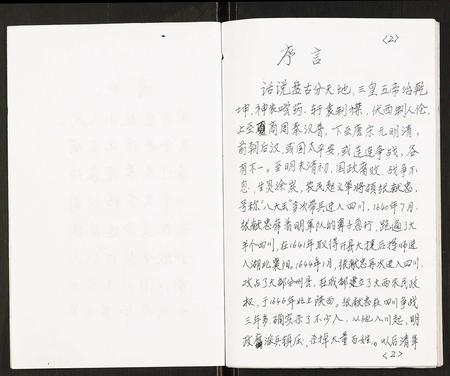 <2>
序言
话说盘古分天地，三皇五帝治乾
坤，神农尝药，轩袁制襟，伏西别人伦，
上至夏商周秦汉晋，下至唐宋元明清，
前朝后汉，或国太平安，或连连争战，各
有不一。至明末清初，国政腐败，战争不
息，生灵涂炭，农民起义军将领张献忠，
号称“八大王”首次带兵进入四川，1640年7月，
张献忠牵着明军队的鼻子急行，跑遍了大
半个四川，在1641年取得开县大捷后挥师进
入湖北襄阳。1644年1月，张献忠再次进入四川，
攻占了大部分州县，在成都建立了大西农民政
权，于1646年北上陕西，张献忠在四川争战
三年多，确实杀了不少人，从他入川起，明
政府派兵镇压，杀掉大量百姓。以后清军
<2>